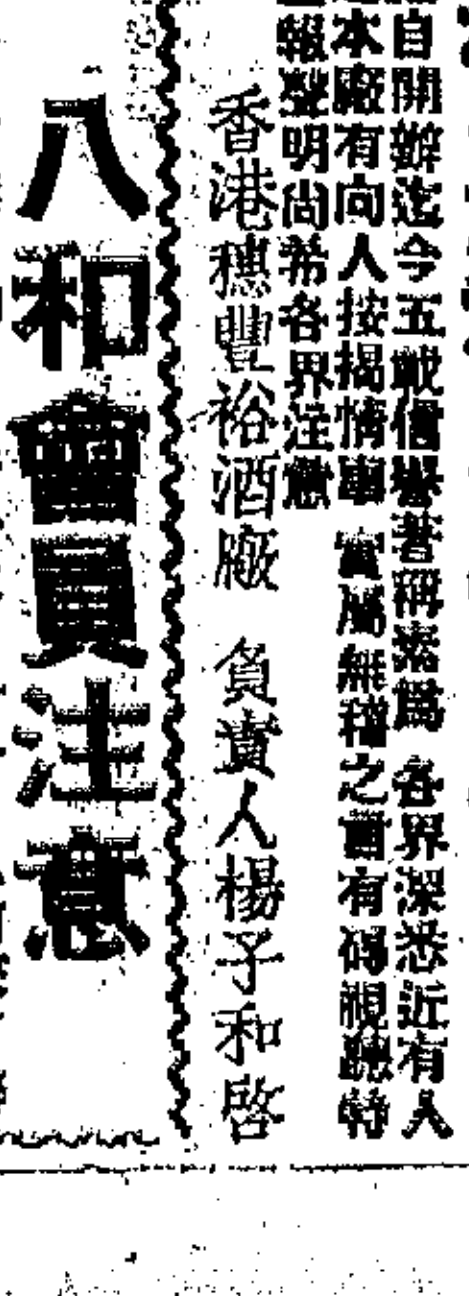 自開辦迄今五載信譽著稱素爲 各界深悉近有人
本廠有向人按揭情事 實屬無稽之言有碍視聽特
報聲明尚希各界注意
香港穗豐裕酒廠 負責人楊子和啓
八和會員注意